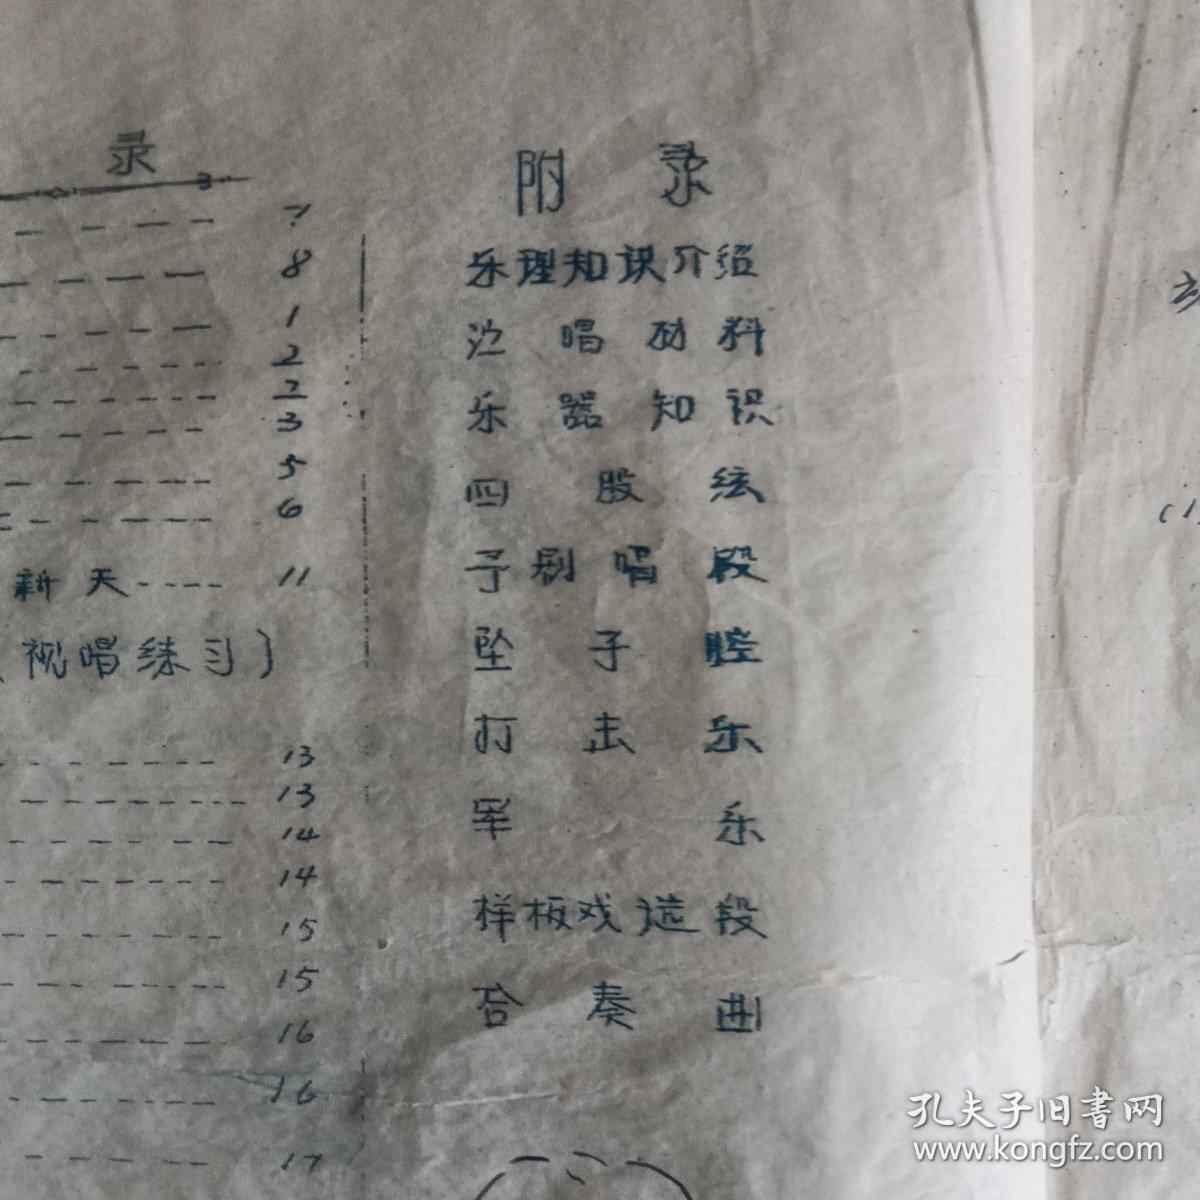 录
7
8
1
2
2
3
5
6
新天---- 11
(视唱练习)
13
13
14
14
15
15
16
16
17
附录
乐理知识介绍
泛唱材料
乐器知识
四股弦
予剧唱段
坠子腔
打击乐
军乐
样板戏选段
合奏曲
(1
孔夫子旧書网
www.kongfz.com